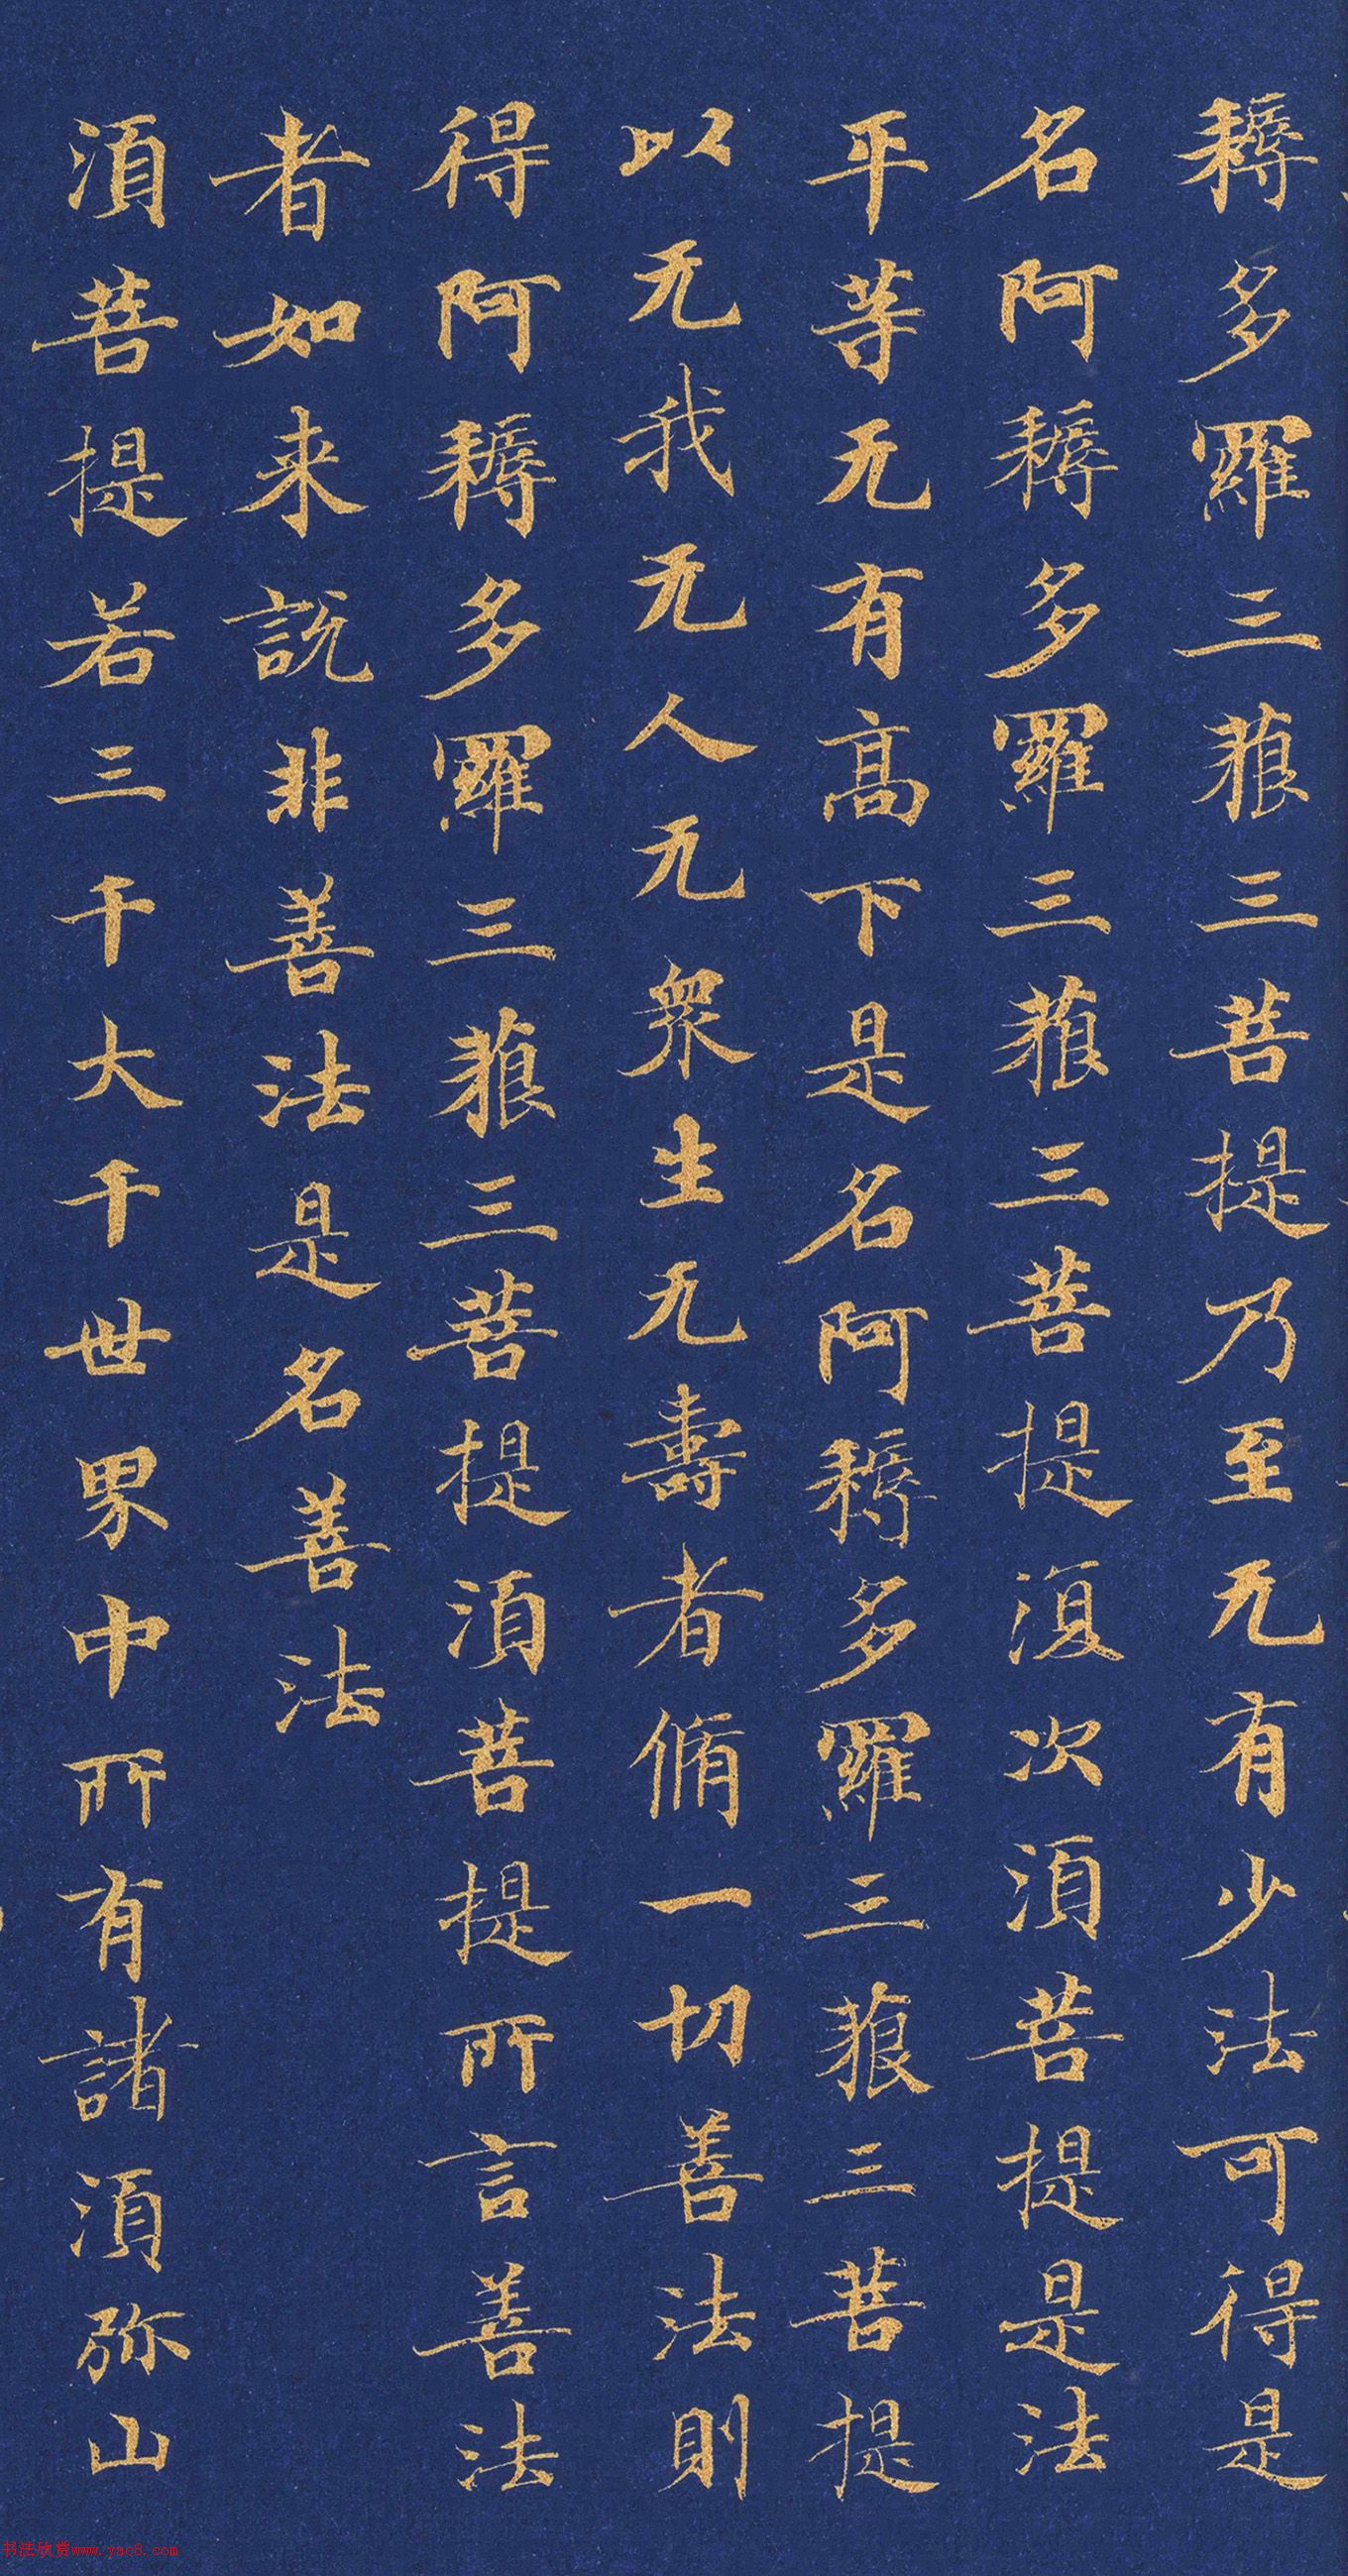 耨多羅三藐三菩提乃至无有少法可得是
名阿耨多羅三藐三菩提復次須菩提是法
平等无有高下是名阿耨多羅三藐三菩提
以无我无人无衆生无壽者脩一切善法則
得阿耨多羅三藐三菩提須菩提所言善法
者如来說非善法是名善法
須菩提若三千大千世界中所有諸須弥山
书法欣赏www.yac8.com